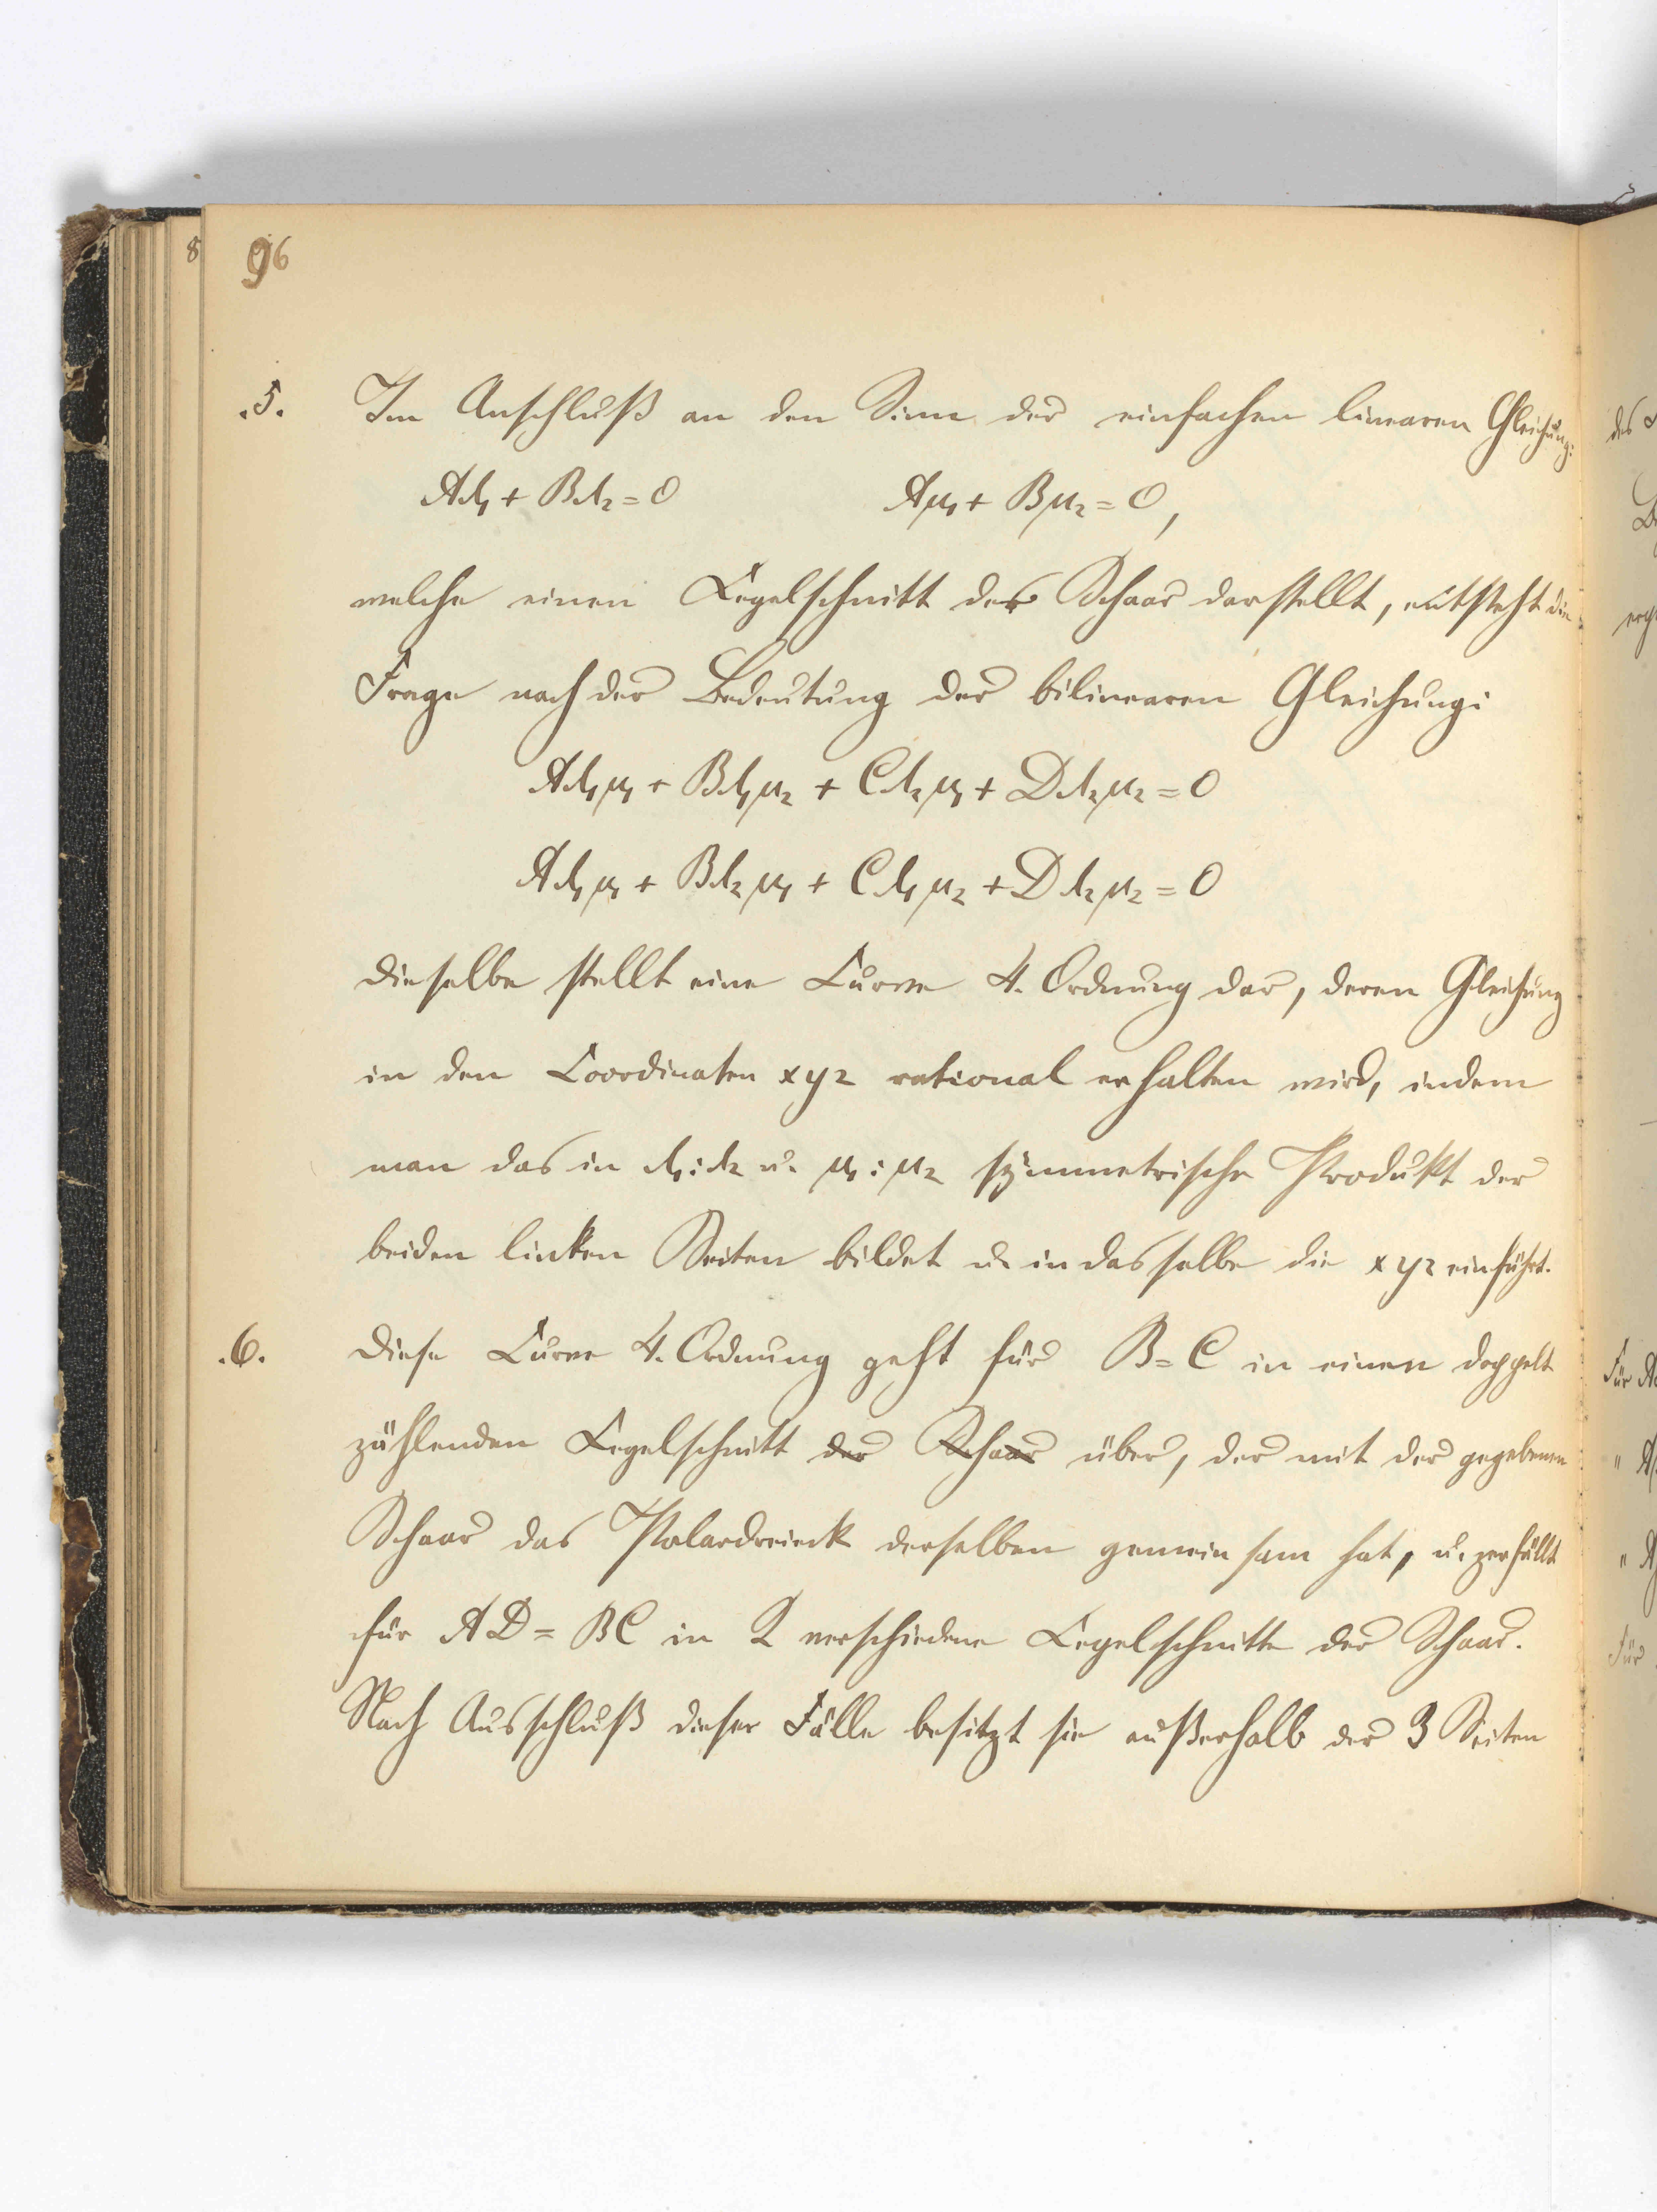 8
96
.5. Im Anschluß an den Sinn der einfachen linearen Gleichung:
Aλ₁ + Bλ₂ = 0 Aμ₁ + Bμ₂ = 0,
welche einen Kegelschnitt der Schaar darstellt, entsteht die
Frage nach der Bedeutung der bilinearen Gleichung:
Aλ₁μ₁ + Bλ₁μ₂ + Cλ₂μ₁ + Dλ₂μ₂ = 0
Aλ₁μ₁ + Bλ₂μ₁ + Cλ₁μ₂ + Dλ₂μ₂ = 0
dieselbe stellt eine Curve 4. Ordnung dar, deren Gleichung
in den Coordinaten x y z rational erhalten wird, indem
man das in λ₁:λ₂ u. μ₁:μ₂ symmetrische Produkt der
beiden linken Seiten bildet u. in dasselbe die x y z einführt.
.6. Diese Curve 4. Ordnung geht für B = C in einen doppelt
zählenden Kegelschnitt der Schaar über, der mit der gegebenen
Schaar das Polardreieck derselben gemeinsam hat, u. zerfällt
für AD = BC in 2 verschiedene Kegelschnitte der Schaar.
Nach Ausschluß dieser Fälle besitzt sie außerhalb der 3 Seiten
des
Für
"
"
Für